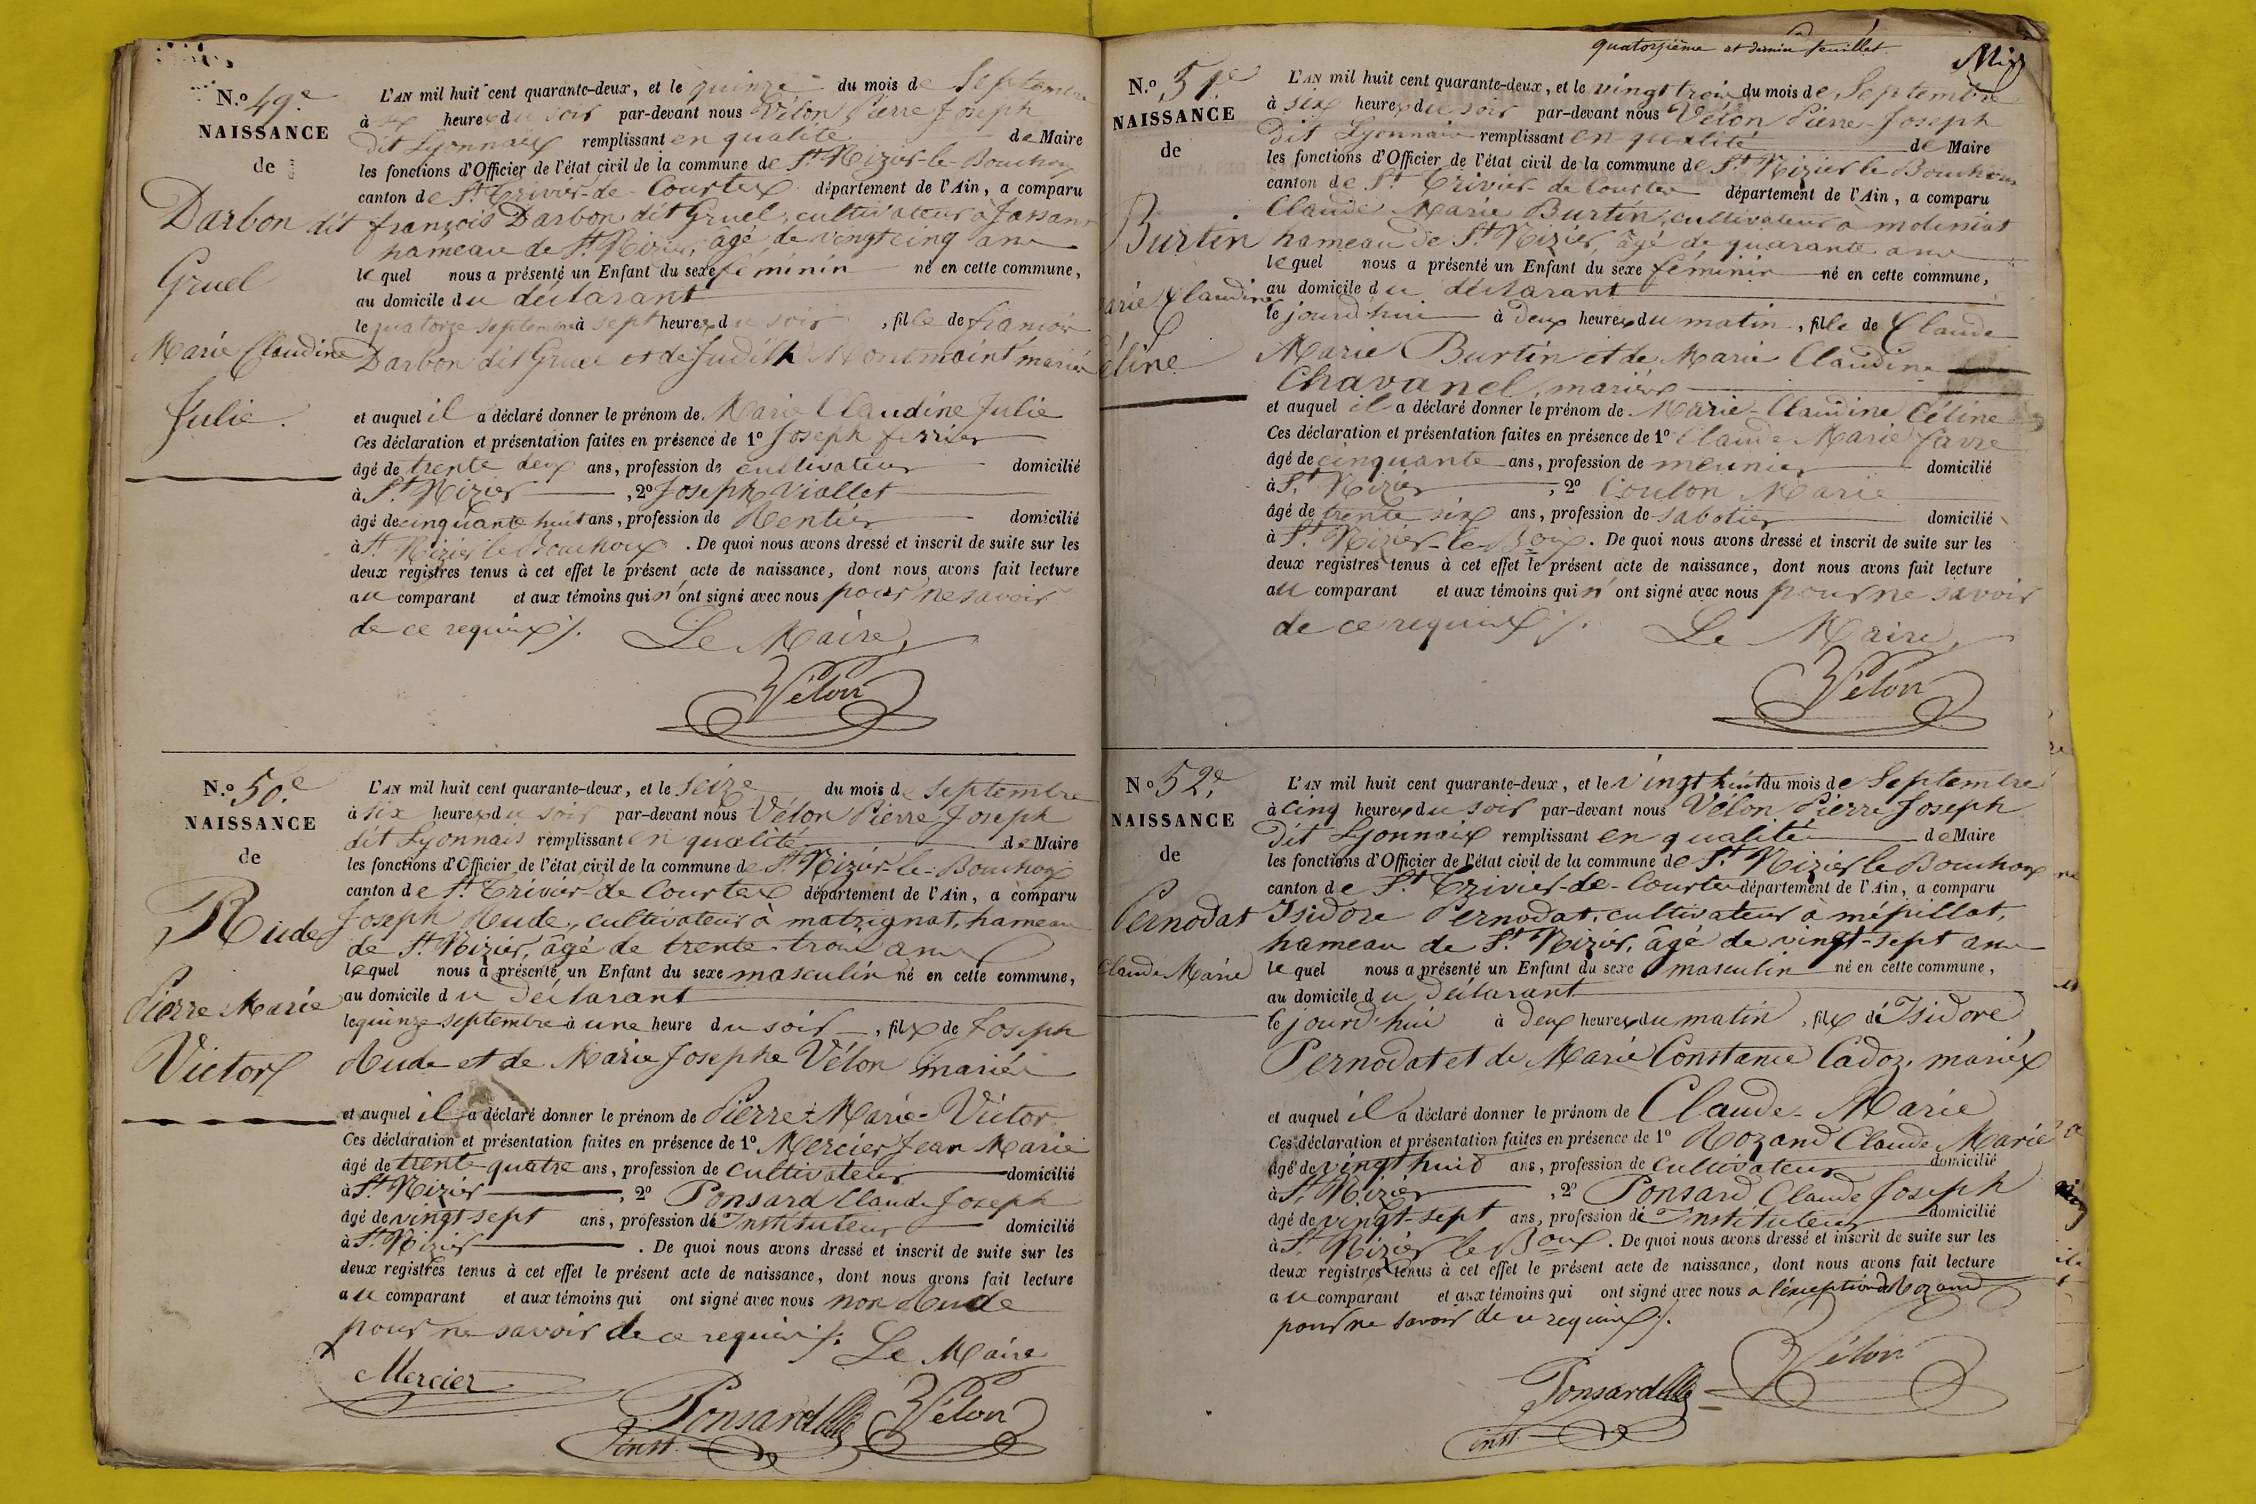 N.º 49.e
NAISSANCE
de
Darbon dit
Gruel
Marie Claudine
Julie.
L'AN mil huit cent quarante-deux, et le quinze du mois de Septembre
à six heures du soir par-devant nous Vélon Pierre Joseph
dit Lyonnais remplissant en qualité de Maire
les fonctions d'Officier de l'état civil de la commune de St. Nizier-le-Bouchoux
canton de St. Trivier-de-Courtes département de l'Ain, a comparu
françois Darbon dit Gruel, cultivateur à Jassans
hameau de St. Nizier, âgé de vingt cinq ans
lequel nous a présenté un Enfant du sexe féminin né en cette commune,
au domicile du déclarant
le quatorze septembre à sept heures du soir, fille de françois
Darbon dit Gruel et de Judith Montmoint mariés
et auquel il a déclaré donner le prénom de Marie Claudine Julie
Ces déclaration et présentation faites en présence de 1º Joseph ferrier
âgé de trente deux ans, profession de cultivateur domicilié
à St. Nizier, 2º Joseph Viollet
âgé de cinquante huit ans, profession de Rentier domicilié
à St. Nizier le Bouchoux. De quoi nous avons dressé et inscrit de suite sur les
deux registres tenus à cet effet le présent acte de naissance, dont nous avons fait lecture
au comparant et aux témoins qui n'ont signé avec nous pour ne savoir
de ce requis ./. Le Maire,
Vélon
N.º 50.e
NAISSANCE
de
Rude
Pierre Marie
Victor
L'AN mil huit cent quarante-deux, et le seize du mois de septembre
à six heures du soir par-devant nous Vélon Pierre Joseph
dit Lyonnais remplissant en qualité de Maire
les fonctions d'Officier de l'état civil de la commune de St. Nizier-le-Bouchoux
canton de St. Trivier-de-Courtes département de l'Ain, a comparu
Joseph Rude, cultivateur à matrignat, hameau
de St. Nizier, âgé de trente-trois ans
lequel nous a présenté un Enfant du sexe masculin né en cette commune,
au domicile du déclarant
le quinze septembre à une heure du soir, fils de Joseph
Rude et de Marie Josephe Vélon mariés
et auquel il a déclaré donner le prénom de Pierre-Marie-Victor
Ces déclaration et présentation faites en présence de 1º Mercier Jean Marie
âgé de trente quatre ans, profession de cultivateur domicilié
à St. Nizier, 2º Ponsard Claude Joseph
âgé de vingt sept ans, profession de Instituteur domicilié
à St. Nizier. De quoi nous avons dressé et inscrit de suite sur les
deux registres tenus à cet effet le présent acte de naissance, dont nous avons fait lecture
au comparant et aux témoins qui ont signé avec nous non Rude
pour ne savoir de ce requis ./. Le Maire
Mercier
Ponsard
Vélon
inst.
quatorzième et dernier feuillet.
N.º 51.e
NAISSANCE
de
Burtin
Marie Claudine
Céline
L'AN mil huit cent quarante-deux, et le vingt trois du mois de Septembre
à six heures du soir par-devant nous Vélon Pierre-Joseph
dit Lyonnais remplissant en qualité de Maire
les fonctions d'Officier de l'état civil de la commune de St. Nizier le Bouchoux
canton de St. Trivier-de Courtes département de l'Ain, a comparu
Claude Marie Burtin, cultivateur à moliniat
hameau de St. Nizier, âgé de quarante ans
lequel nous a présenté un Enfant du sexe féminin né en cette commune,
au domicile du déclarant
le jourd'hui à deux heures du matin, fille de Claude
Marie Burtin et de Marie Claudine
Chavanel, mariés
et auquel il a déclaré donner le prénom de Marie-Claudine Céline
Ces déclaration et présentation faites en présence de 1º Claude Marie favre
âgé de cinquante ans, profession de meunier domicilié
à St. Nizier, 2º Coulon Marie
âgé de trente six ans, profession de sabotier domicilié
à St. Nizier-le-Boux. De quoi nous avons dressé et inscrit de suite sur les
deux registres tenus à cet effet le présent acte de naissance, dont nous avons fait lecture
au comparant et aux témoins qui n'ont signé avec nous pour ne savoir
de ce requis ./. Le Maire,
Vélon
N.º 52.e
NAISSANCE
de
Pernodat
Claude Marie
L'AN mil huit cent quarante-deux, et le vingt huit du mois de Septembre
à cinq heures du soir par-devant nous Vélon Pierre Joseph
dit Lyonnais remplissant en qualité de Maire
les fonctions d'Officier de l'état civil de la commune de St. Nizier le Bouchoux
canton de St. Trivier-de-Courtes département de l'Ain, a comparu
Isidore Pernodat, cultivateur à mépillat,
hameau de St. Nizier, âgé de vingt-sept ans
lequel nous a présenté un Enfant du sexe masculin né en cette commune,
au domicile du déclarant
le jourd'hui à deux heures du matin, fils de Isidore
Pernodat et de Marie Constance Cadoz, mariés
et auquel il a déclaré donner le prénom de Claude-Marie
Ces déclaration et présentation faites en présence de 1º Rozand Claude Marie
âgé de vingt huit ans, profession de Cultivateur domicilié
à St. Nizier, 2º Ponsard Claude Joseph
âgé de vingt-sept ans, profession de Instituteur domicilié
à St. Nizier le Boux. De quoi nous avons dressé et inscrit de suite sur les
deux registres tenus à cet effet le présent acte de naissance, dont nous avons fait lecture
au comparant et aux témoins qui ont signé avec nous a l'éxception de Rozand
pour ne savoir de ce requis ./.
Vélon
Ponsard
inst